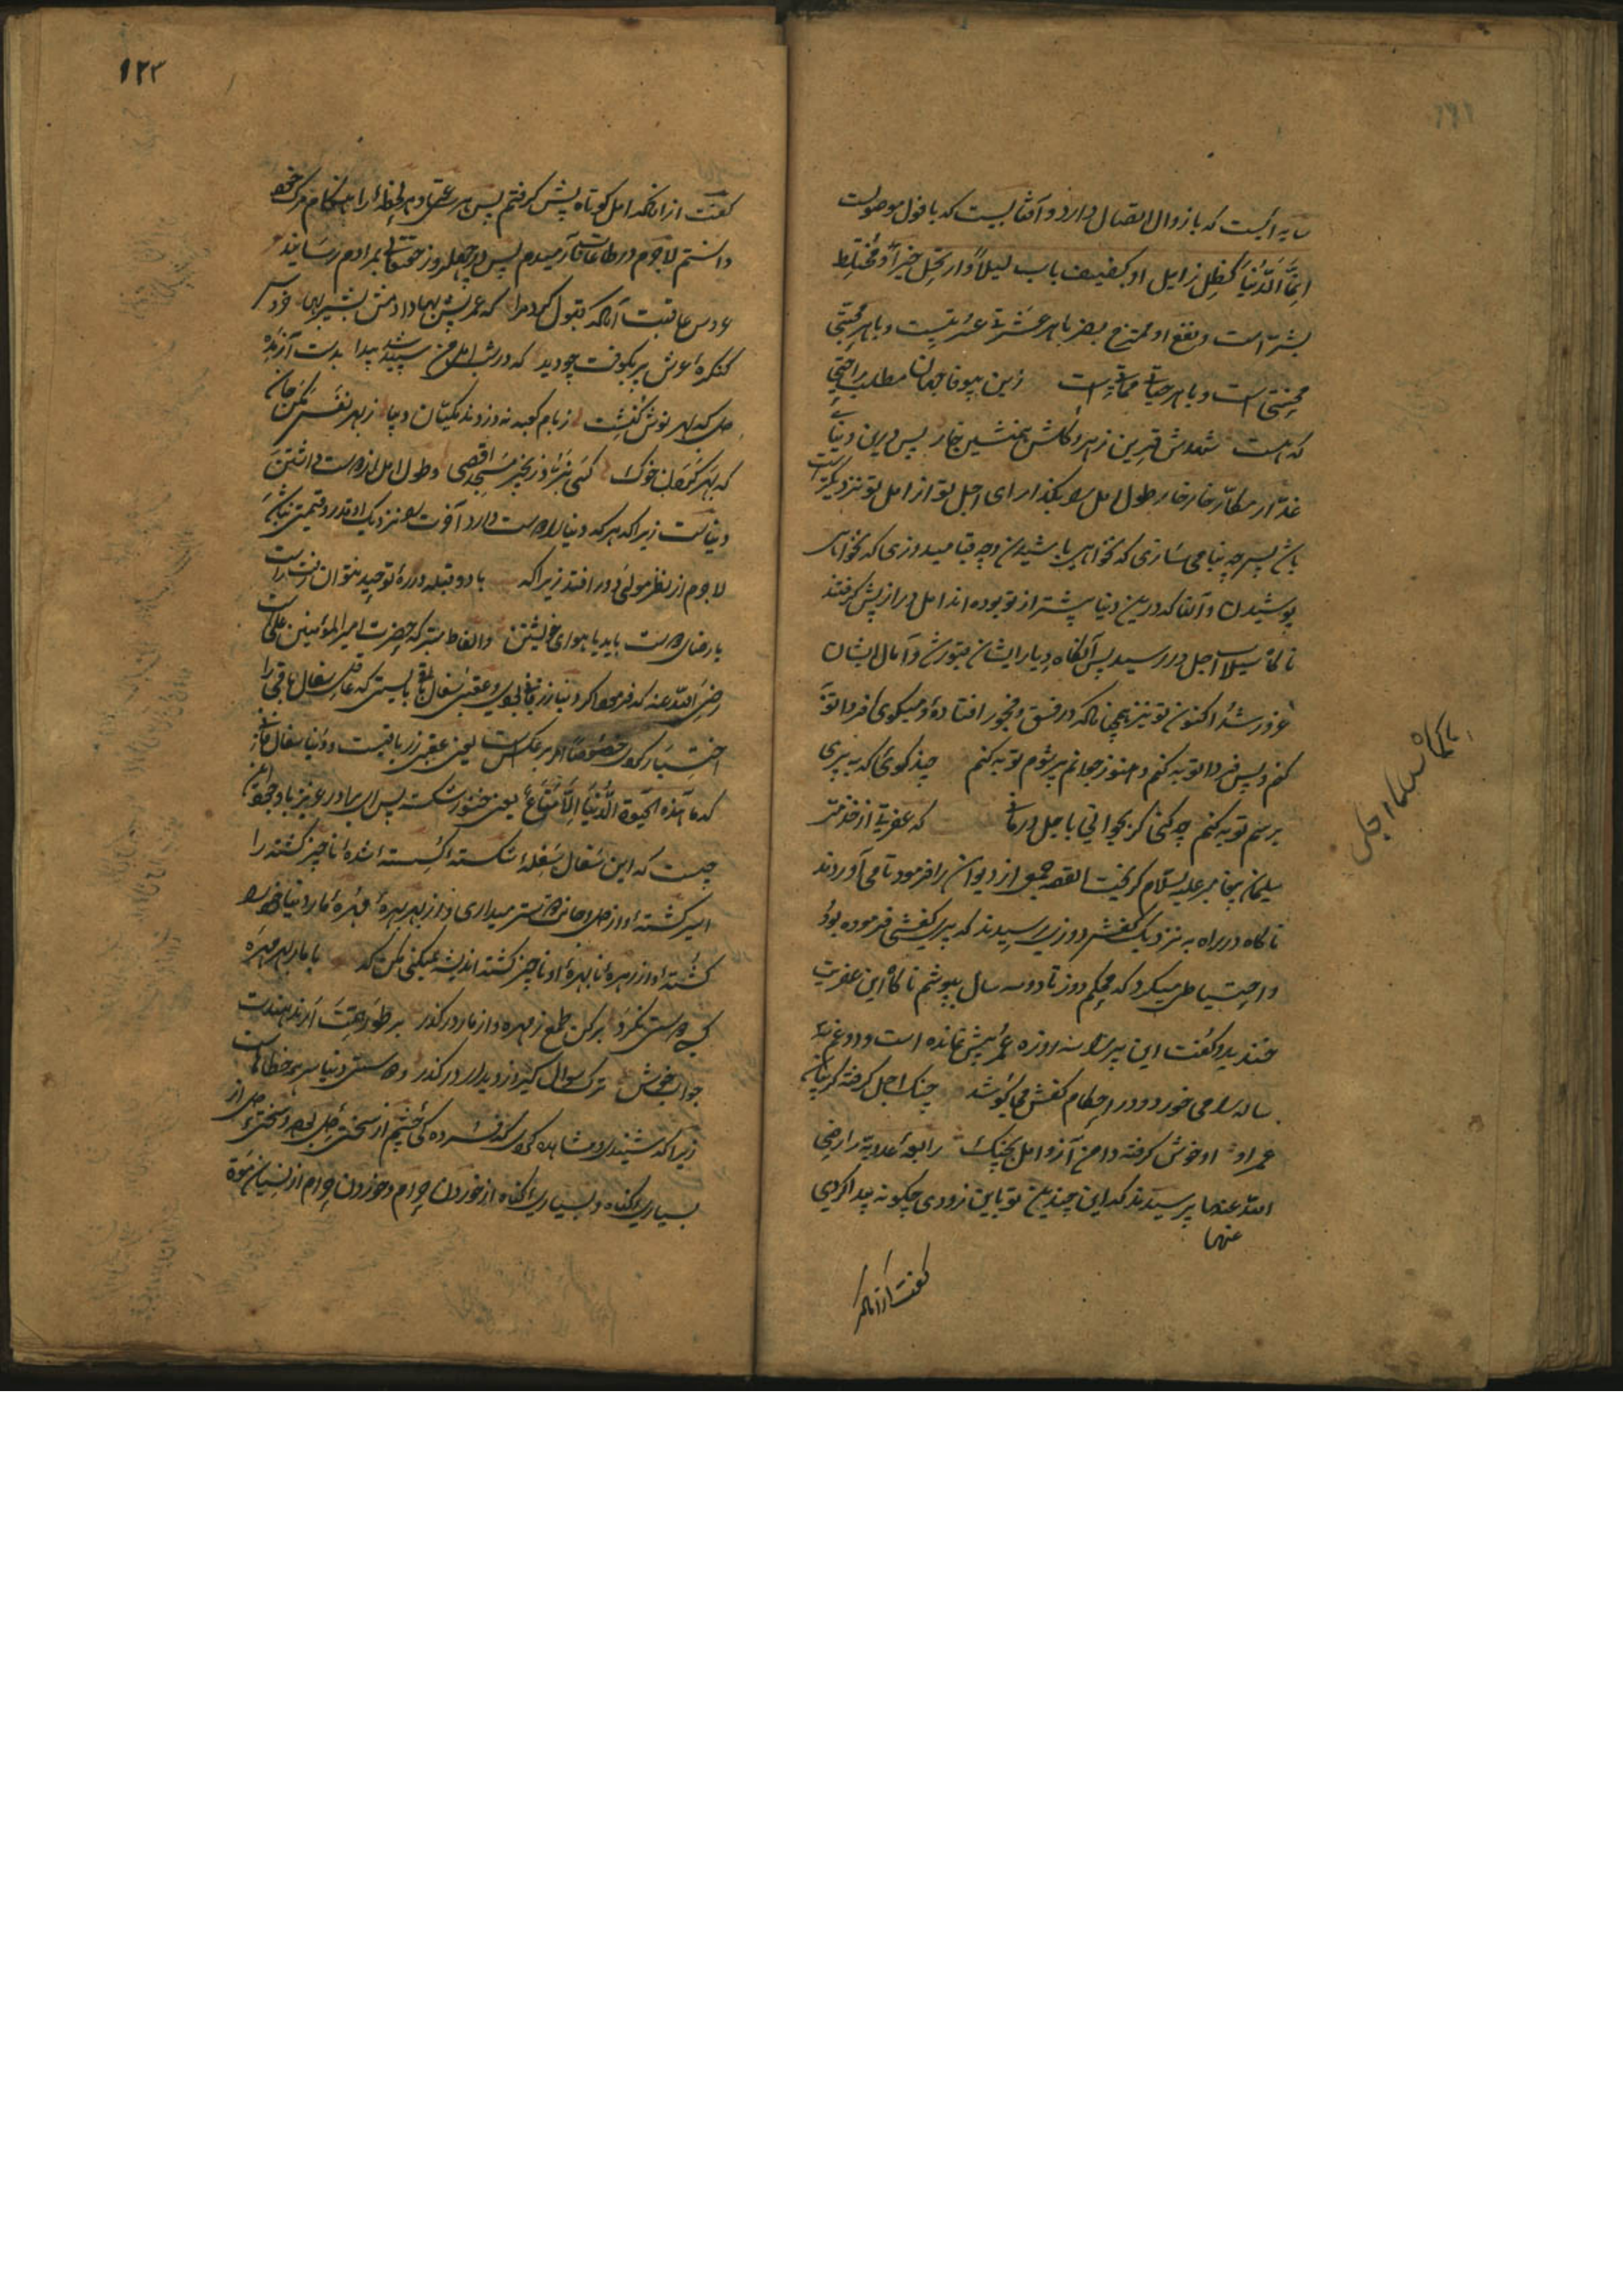 سایه ایست که با زوال اتصال دارد و آفتابیست که با فول موصولست
انما الدنیا کظل زایل او کضیف بات لیلا وارتحل خیر او مختلط
بشر است و نفع او ممتزج بضر با هر عشرتی عسرتیست و با هر محبتی
محنتی است و با هر حیاتی مماتی است زین بیوفا جهان مطلب راحتی
که هست شهدش قرین زهر و گلش همنشین خار پس درین دنیا
غدار مکار خار خار طول امل را بگذار ای اجل تو از امل تو نزدیکتر است
باش پس چه بنا می سازی که نخواهی باشیدن و چه قبا میدوزی که نخواهی
پوشیدن و آنها که درین دنیا پیشتر از تو بوده اند امل دراز پیش گرفتند
تا که سیلاب اجل در رسید پس آنگاه دیار ایشان قبورشان و آمال ایشان
غرور شد اکنون تو نیز همچنانکه در فسق و فجور افتاده و میگوی فردا توبه
کنم و پس فردا توبه کنم و هنوز جوانم پیر شوم توبه کنم چند گوئی که به پیری
برسم توبه کنم چه کنی گر بجوانی با جل درمانی که عفریتی از خدمت
سلیمان پیغامبر علیه السلام گریخت القصه جمعی از دیوان را فرمود تا می آوردند
ناگاه در راه به نزدیک کفش دوزی رسیدند که پیری کفشی فرموده بود
و احتیاط می میکرد که محکم دوز تا دو سه سال بپوشم ناگاه این عفریت
خندید و گفت این پیر را سه روزه عمر بیش نمانده است و او غم سه
ساله را می خورد و در احکام کفش می کوشد چنگ اجل گرفته گریبان
عمر او او خوش گرفته دامن آز و امل بچنگ رابعه عدویه را رضی
الله عنها پرسیدند که این چندین توباین زودی چگونه پیدا کردی
عنها
گفت از آنکه
۱۲۳
گفت از آنکه امل کوتاه پیش گرفتم پس هر ساعتی و هر لحظه را هنگام مرگ خود
دانستم لاجرم در طاعات آرمیدم پس در چهل روز حق تعالی بمرادم رسانید
عروس عاقبت آنکه قبول کرد مرا که عمر پیش بها دادمش بشیر بها خروس
کنگره عرش پر بکوفت چو دید که در شب امل من سپیده شد پیدا بدست آز مده
دل که بهر نوش کنشت ز بام کعبه نه دزدند مکیان دیبا ز بهر نفس مکن جان
که بهر گردن خوک کسی نبرد زنجیر مسجد اقصی و طول امل از دوست داشتن
دنیاست زیرا که هر که دنیا را دوست دارد آخرت را نزدیک او قدر و قیمتی نباشد
لاجرم از نظر مولی دور افتد زیرا که با دو قبله در ره توحید نتوان رفت راست
یا رضای دوست باید یا هوای خویشتن و الفاظ متبرکه حضرت امیر المؤمنین علی است
رضی الله عنه که فرمود اگر دنیا زر فانی بودی و عقبی سفال باقی بایستی که عاقل سفال باقی را
اختیار کردی خصوصا امر بر عکس است یعنی عقبی زر باقیست و دنیا سفال فانی
که ما هذه الحیوة الدنیا الا متاع یعنی خنور شکسته پس ای برادر عزیز با وجود این
چیست که این سفال سفله شکسته گسسته شده ناچیز گشته را
اسیر گشته و او از دل و جان دوستر میداری و از بهر بهره مهره مار دنیا خود را
کشته و از زهر ه نا بهره او ناچیز گشته اندیشه نمیکنی مکن که با مار بهر مهره
کسی دوستی نکرد بر کن طمع ز مهره و از مار در گذر بر طور همتت ار ندهندت
جواب خوش ترک سوال گیر و ز دیدار در گذر و دوستی دنیا سر همه خطاهاست
زیرا که شنیدی و مشاهده کردی که فسرده کی چشم از سختی دل بود و سختی دل از
بسیاری گناه و بسیاری گناه از خوردن حرام و خوردن حرام از نسیان موة